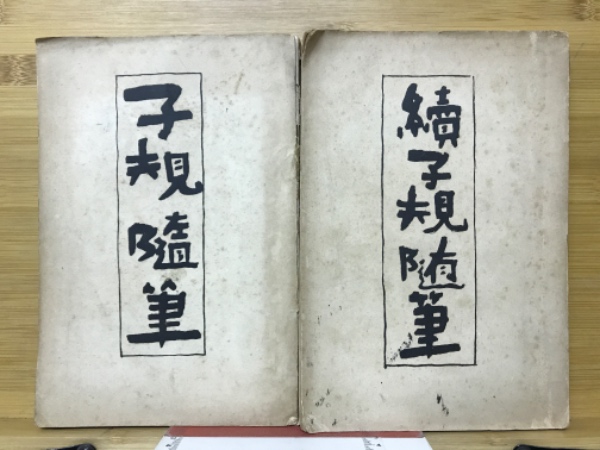 子規隨筆
續子規随筆